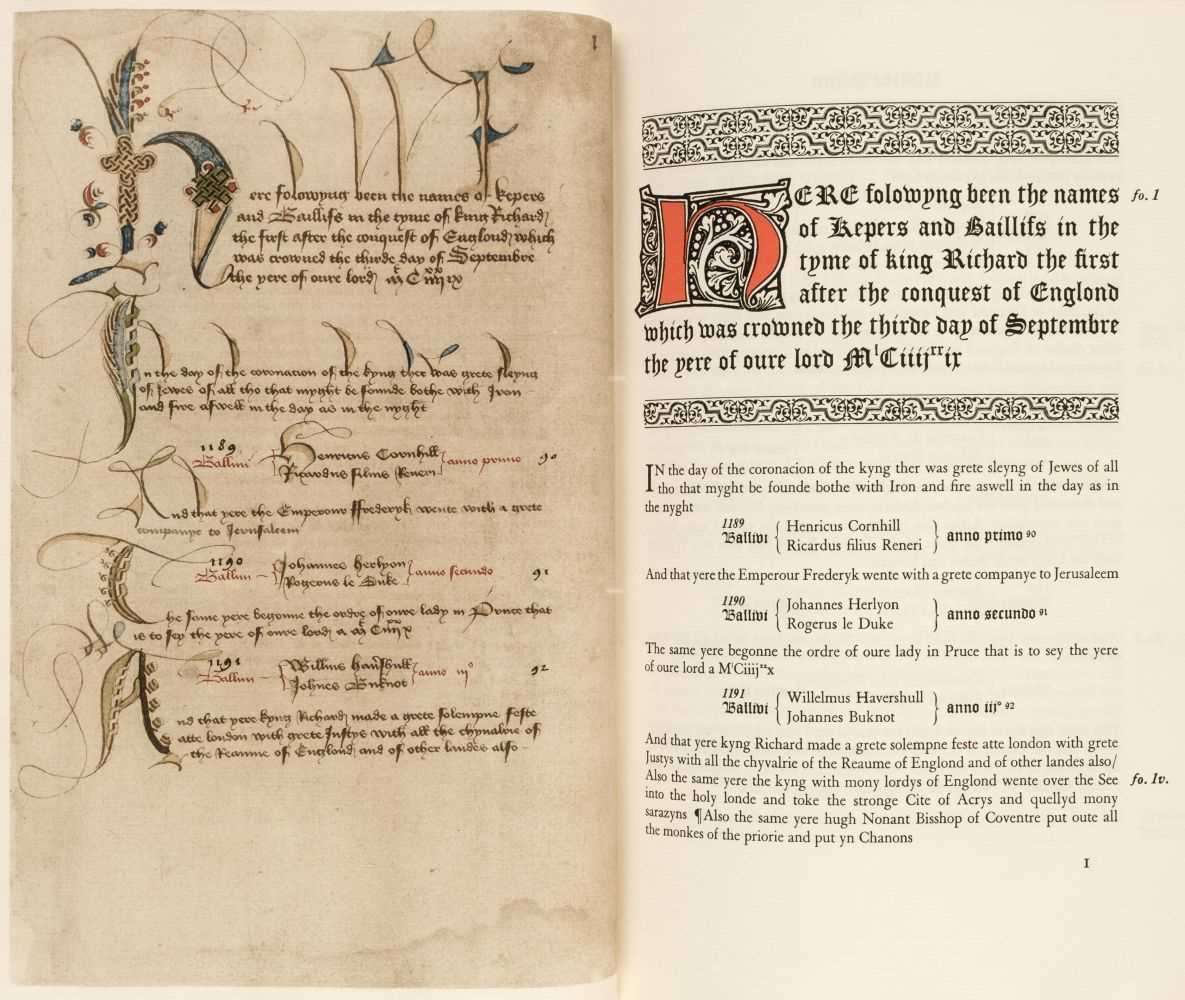 1
Here folowyng been the names of kepers
and Baillifs in the tyme of king Richard
the first after the conquest of Englond which
was crowned the thirde day of Septembre
the yere of oure lord Ml Ciiijxxix
In the day of the coronacion of the kyng ther was grete sleyng
of Jewes of all tho that myght be founde bothe with Iron
and fire aswell in the day as in the nyght
1189
Ballivi Henricus Cornhill
Ricardus filius Reneri anno primo 90
And that yere the Emperour Frederyk wente with a grete
companye to Jerusaleem
1190
Ballivi Johannes herlyon
Rogerus le Duke anno secundo 91
The same yere begonne the ordre of oure lady in Pruce that
is to sey the yere of oure lord a Ml Ciiijxxx
1191
Ballivi Willms havershull
Johnes Buknot anno iijº 92
And that yere kyng Richard made a grete solempne feste
atte london with grete Justys with all the chyvalrie of
the Reaume of Englond and of other landes also
HERE folowyng been the names fo. 1
of Kepers and Baillifs in the
tyme of king Richard the first
after the conquest of Englond
which was crowned the thirde day of Septembre
the yere of oure lord MˡCiiijˣˣix
IN the day of the coronacion of the kyng ther was grete sleyng of Jewes of all
tho that myght be founde bothe with Iron and fire aswell in the day as in
the nyght
1189
Ballivi { Henricus Cornhill
Ricardus filius Reneri } anno primo 90
And that yere the Emperour Frederyk wente with a grete companye to Jerusaleem
1190
Ballivi { Johannes Herlyon
Rogerus le Duke } anno secundo 91
The same yere begonne the ordre of oure lady in Pruce that is to sey the yere
of oure lord a MˡCiiijˣˣx
1191
Ballivi { Willelmus Havershull
Johannes Buknot } anno iijº 92
And that yere kyng Richard made a grete solempne feste atte london with grete
Justys with all the chyvalrie of the Reaume of England and of other landes also/
Also the same yere the kyng with mony lordys of England wente over the See fo. 1v.
into the holy londe and toke the stronge Cite of Acrys and quellyd mony
sarazyns ¶Also the same yere hugh Nonant Bisshop of Coventre put oute all
the monkes of the priorie and put yn Chanons
1